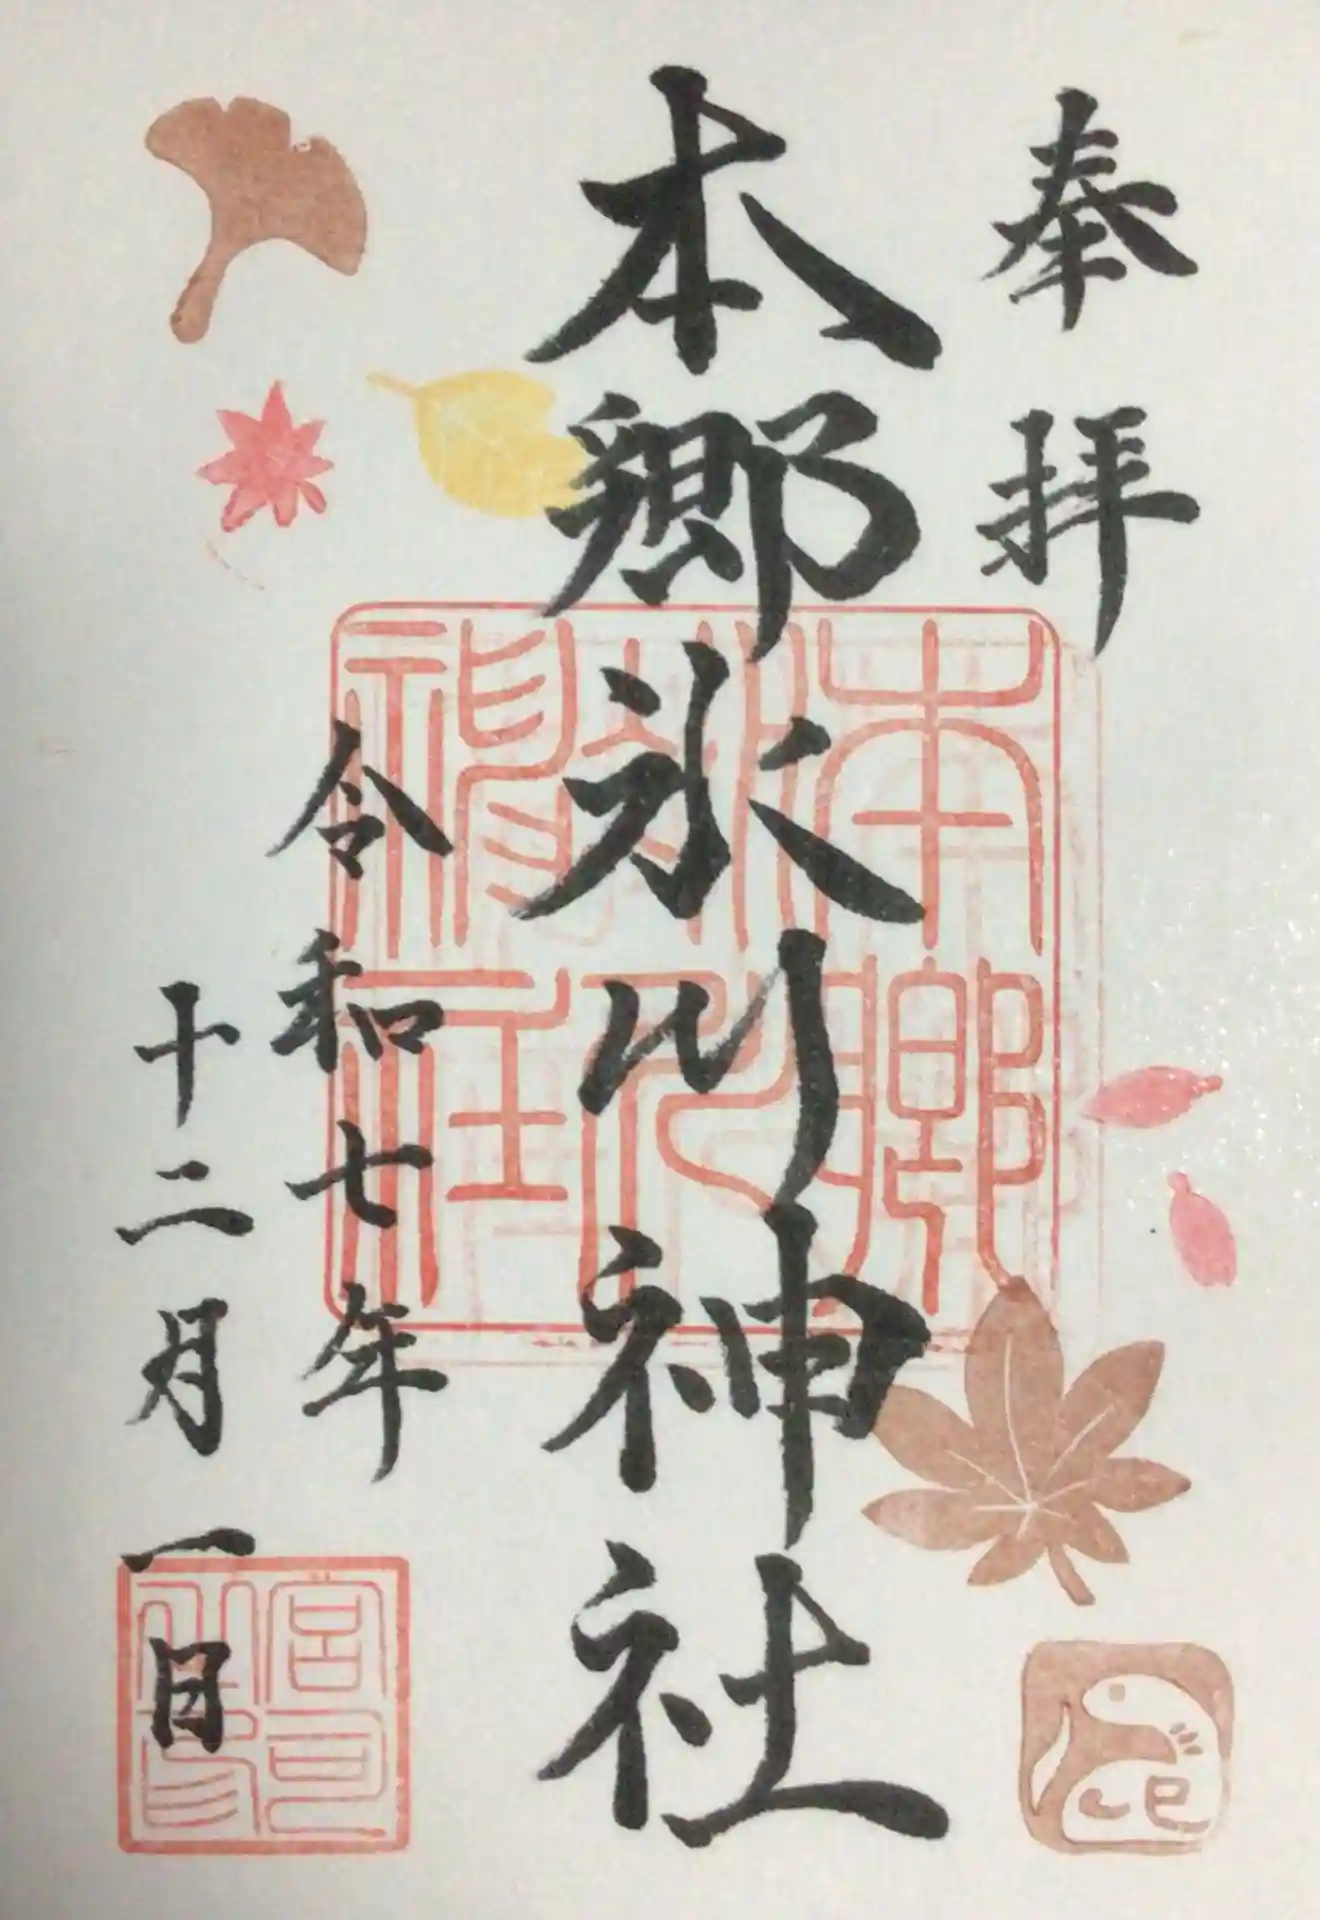 奉拝
本郷氷川神社
本郷
氷川
神社
令和七年
十二月一日
宮司
之印
巳